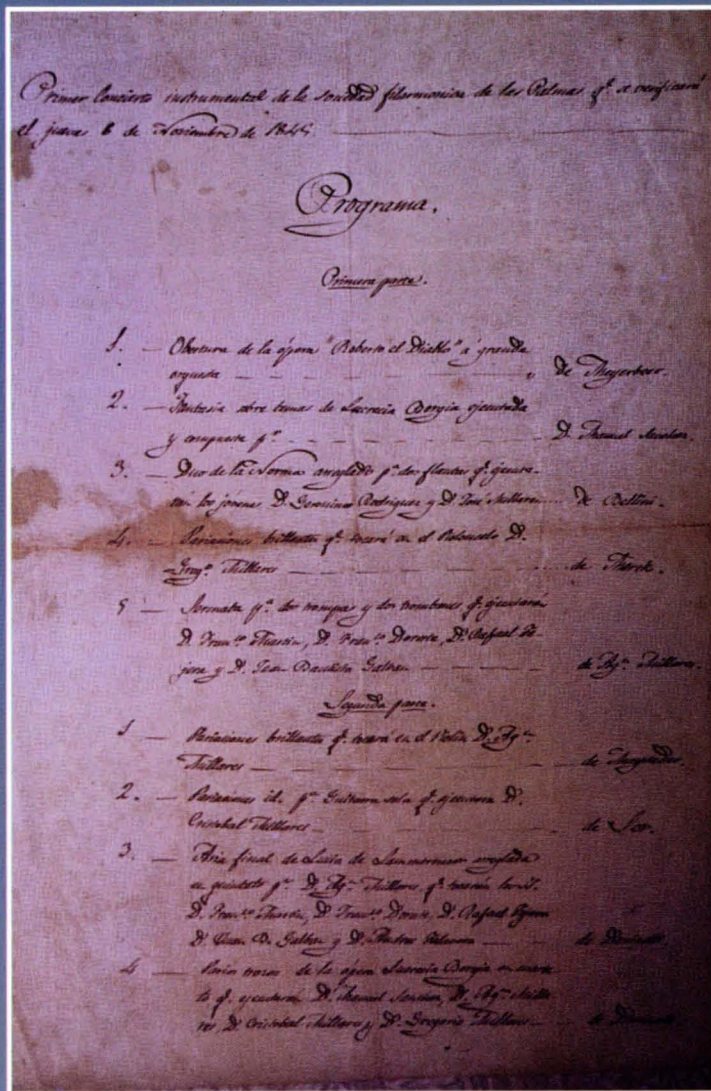 Primer Concierto instrumental de la Sociedad filarmonica de las Palmas qe. se verificará
el jueves 6 de Noviembre de 1845
Programa.
Primera parte.
1. — Obertura de la ópera "Roberto el Diablo" á grande
orquesta — de Meyerbeer.
2. — Fantasía sobre temas de Lucrecia Borgia ejecutada
y compuesta pr. — D. Manuel
3. — Duo de la Norma arreglado pa. dos flautas qe. ejecuta-
rán los jóvenes D. Geronimo Rodriguez y D. José Millares — de Bellini.
4. — Variaciones brillantes qe. tocará en el Violoncelo D.
Gregо. Millares — de Merck.
5 — Sonata pa. dos trompas y dos trombones qe. ejecutarán
D. Franco. Martin, D. Franco. D. Rafael
y D. Juan Bautista — de Agn. Millares.
Segunda parte.
1 — Variaciones brillantes qe. tocará en el Violin D. Agn.
Millares — de
2. — Variaciones id. pa. Guitarra sola qe. ejecutará D.
Cristobal Millares — de Sor.
3. — Aria final de Lucia de Lammermoor arreglada
en quinteto pr. D. Agn. Millares, qe. tocarán
D. Franco. Martin, D. Franco. D. Rafael
D. Juan B. y D. — de
4 — Varios trozos de la ópera Lucrecia Borgia en cuarte-
to qe. ejecutarán D. Manuel D. Agn. Milla-
res, D. Cristobal Millares y D. Gregorio Millares — de